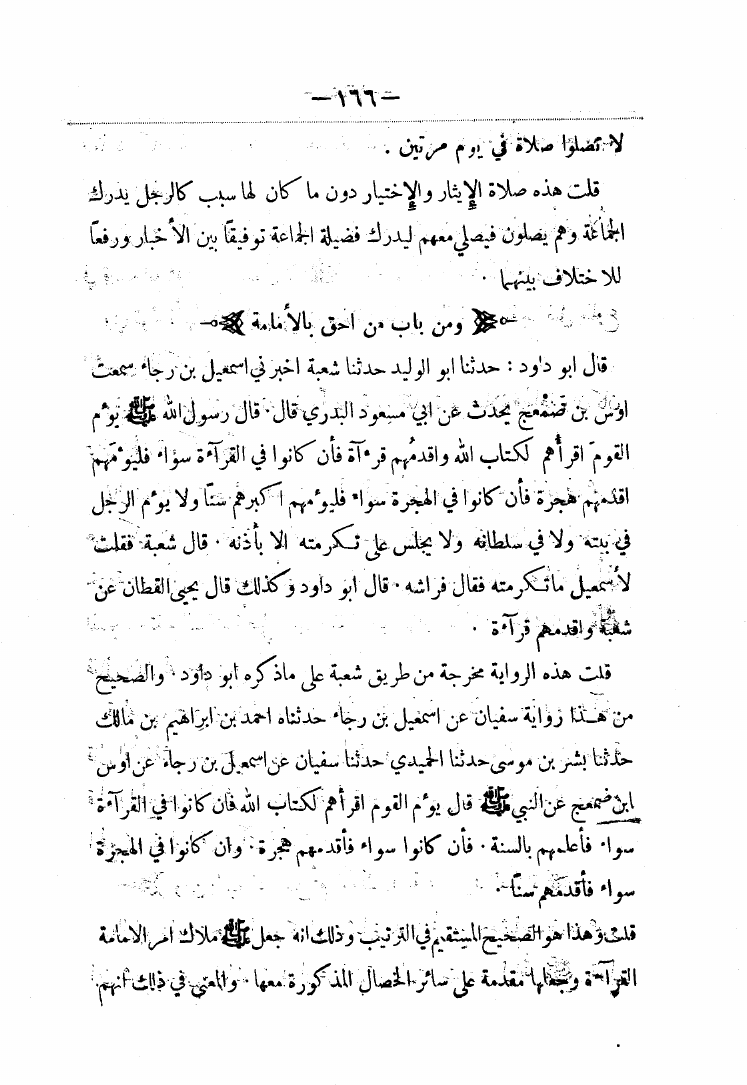 — ١٦٦ —
لا تصلوا صلاة في يوم مرتين .
قلت هذه صلاة الإيثار والإختيار دون ما كان لها سبب كالرجل يدرك
الجماعة وهم يصلون فيصلي معهم ليدرك فضيلة الجماعة توفيقاً بين الأخبار ورفعاً
للاختلاف بينهما .
ومن باب من احق بالأمامة
قال ابو داود : حدثنا ابو الوليد حدثنا شعبة اخبرني اسمعيل بن رجاء سمعت
اوس بن ضمعج يحدث عن ابي مسعود البدري قال . قال رسول الله ﷺ يؤم
القوم اقرأهم لكتاب الله واقدمُهم قرءآة فأن كانوا في القرآءة سواء فليؤمهم
اقدمهم هجرة فأن كانوا في الهجرة سواء فليؤمهم اكبرهم سنّا ولا يؤم الرجل
في بيته ولا في سلطانه ولا يجلس على تكرمته الا بأذنه . قال شعبة فقلت
لأسمعيل ما تكرمته فقال فراشه . قال ابو داود وكذلك قال يحيى القطان عن
شعبة واقدمهم قرآءة .
قلت هذه الرواية مخرجة من طريق شعبة على ما ذكره ابو داود . والصحيح
من هذا رواية سفيان عن اسمعيل بن رجاء حدثناه احمد بن ابراهيم بن مالك
حدثنا بشر بن موسى حدثنا الحميدي حدثنا سفيان عن اسمعيل بن رجاء عن اوس
ابن ضمعج عن النبي ﷺ قال يؤم القوم اقرأهم لكتاب الله فان كانوا في القرآءة
سواء فأعلمهم بالسنة . فأن كانوا سواء فأقدمهم هجرة . وان كانوا في الهجرة
سواء فأقدمهم سنّا .
قلت وهذا هو الصحيح المستقيم في الترتيب وذلك انه جعل ﷺ ملاك امر الامامة
القرآءة وجعلها مقدمة على سائر الخصال المذكورة معها . والمعنى في ذلك انهم